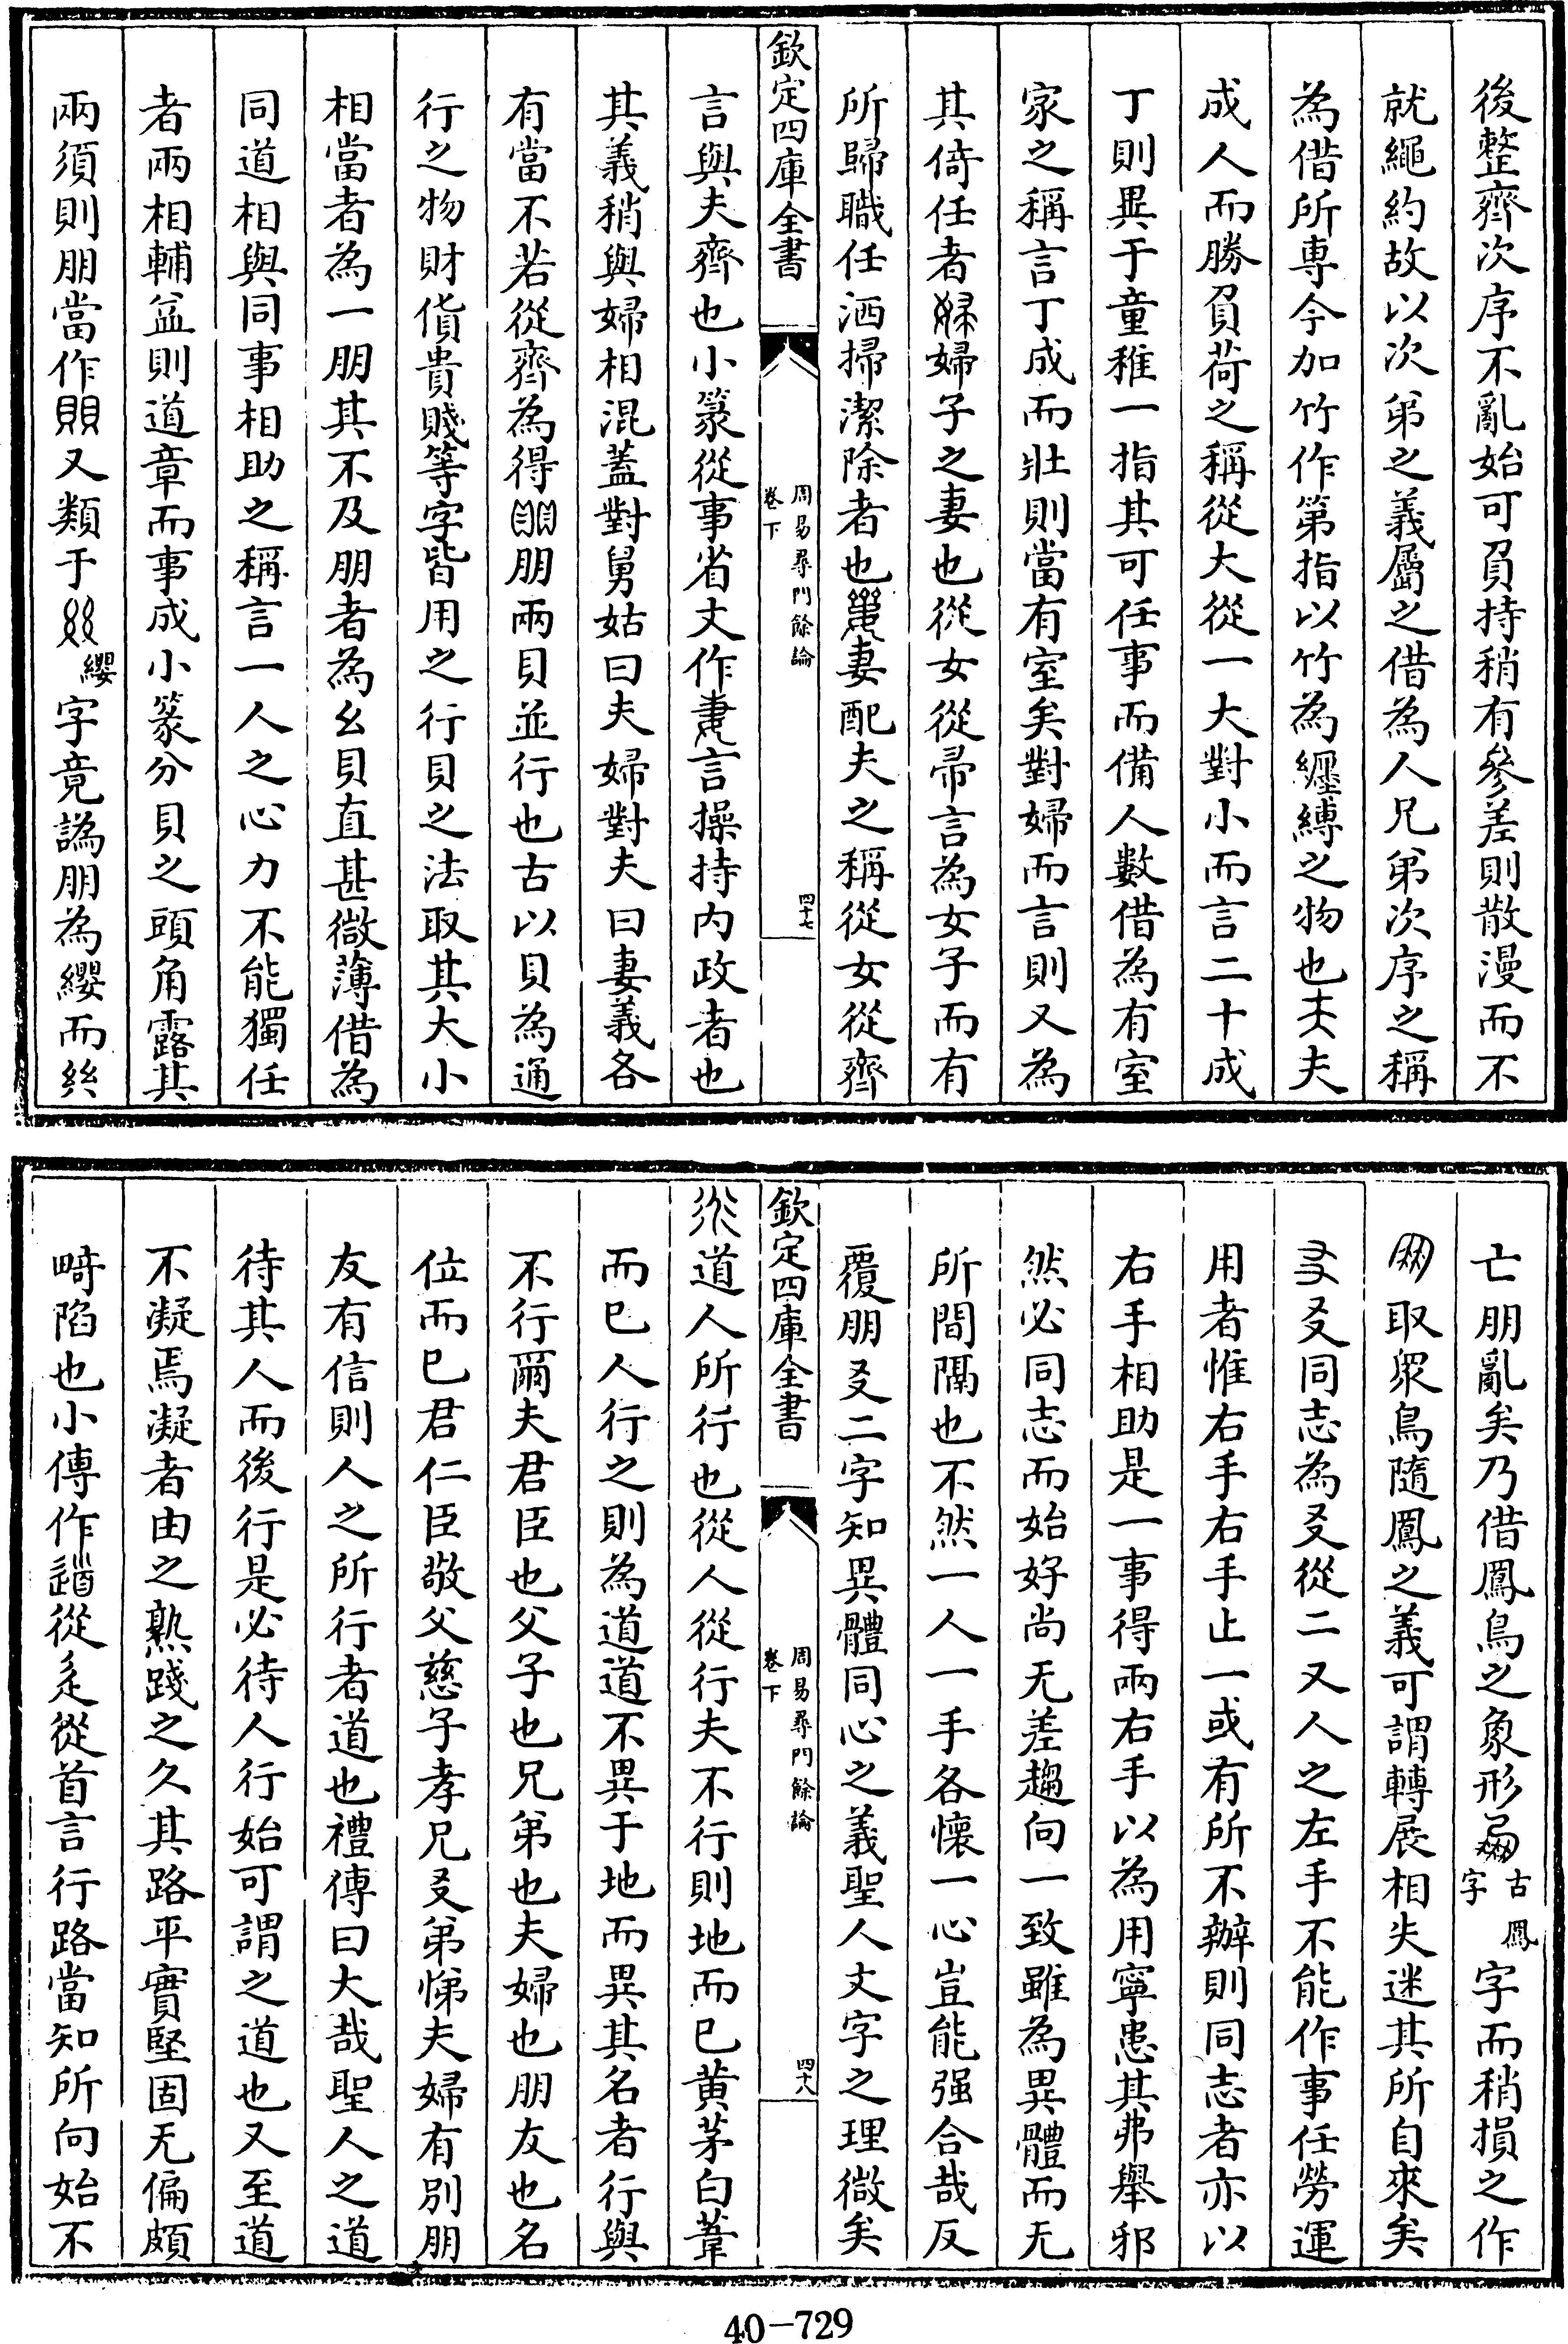 後整齊次序不亂始可負持稍有參差則散漫而不
就繩約故以次第之義屬之借為人兄弟次序之稱
為借所專今加竹作第指以竹為纏縛之物也夫
成人而勝負荷之稱從大從一大對小而言二十成
丁則異于童稚一指其可任事而備人數借為有室
家之稱言丁成而壯則當有室矣對婦而言則又為
其倚任者婦子之妻也從女從帚言為女子而有
所歸職任洒掃潔除者也妻配夫之稱從女從齊
欽定四庫全書
周易尋門餘論
卷下
四十七
言與夫齊也小篆從事省文作言操持内政者也
其義稍與婦相混蓋對舅姑曰夫婦對夫曰妻義各
有當不若從齊為得朋兩貝並行也古以貝為通
行之物財貨貴賤等字皆用之行貝之法取其大小
相當者為一朋其不及朋者為幺貝直甚微薄借為
同道相與同事相助之稱言一人之心力不能獨任
者兩相輔益則道章而事成小篆分貝之頭角露其
兩須則朋當作賏又類于纓字竟譌朋為纓而㢭
亡朋亂矣乃借鳳鳥之象形古鳳字字而稍損之作
取眾鳥隨鳳之義可謂轉展相失迷其所自來矣
㕛同志為㕛從二又人之左手不能作事任勞運
用者惟右手右手止一或有所不辦則同志者亦以
右手相助是一事得兩右手以為用寧患其弗舉邪
然必同志而始好尚无差趨向一致雖為異體而无
所間隔也不然一人一手各懷一心豈能强合哉反
覆朋㕛二字知異體同心之義聖人文字之理微矣
欽定四庫全書
周易尋門餘論
卷下
四十八
道人所行也從人從行夫不行則地而已黄茅白葦
而已人行之則為道道不異于地而異其名者行與
不行爾夫君臣也父子也兄弟也夫婦也朋友也名
位而已君仁臣敬父慈子孝兄㕛弟悌夫婦有別朋
友有信則人之所行者道也禮傳曰大哉聖人之道
待其人而後行是必待人行始可謂之道也又至道
不凝焉凝者由之熟踐之久其路平實堅固无偏頗
畸陷也小傳作從辵從首言行路當知所向始不
40-729